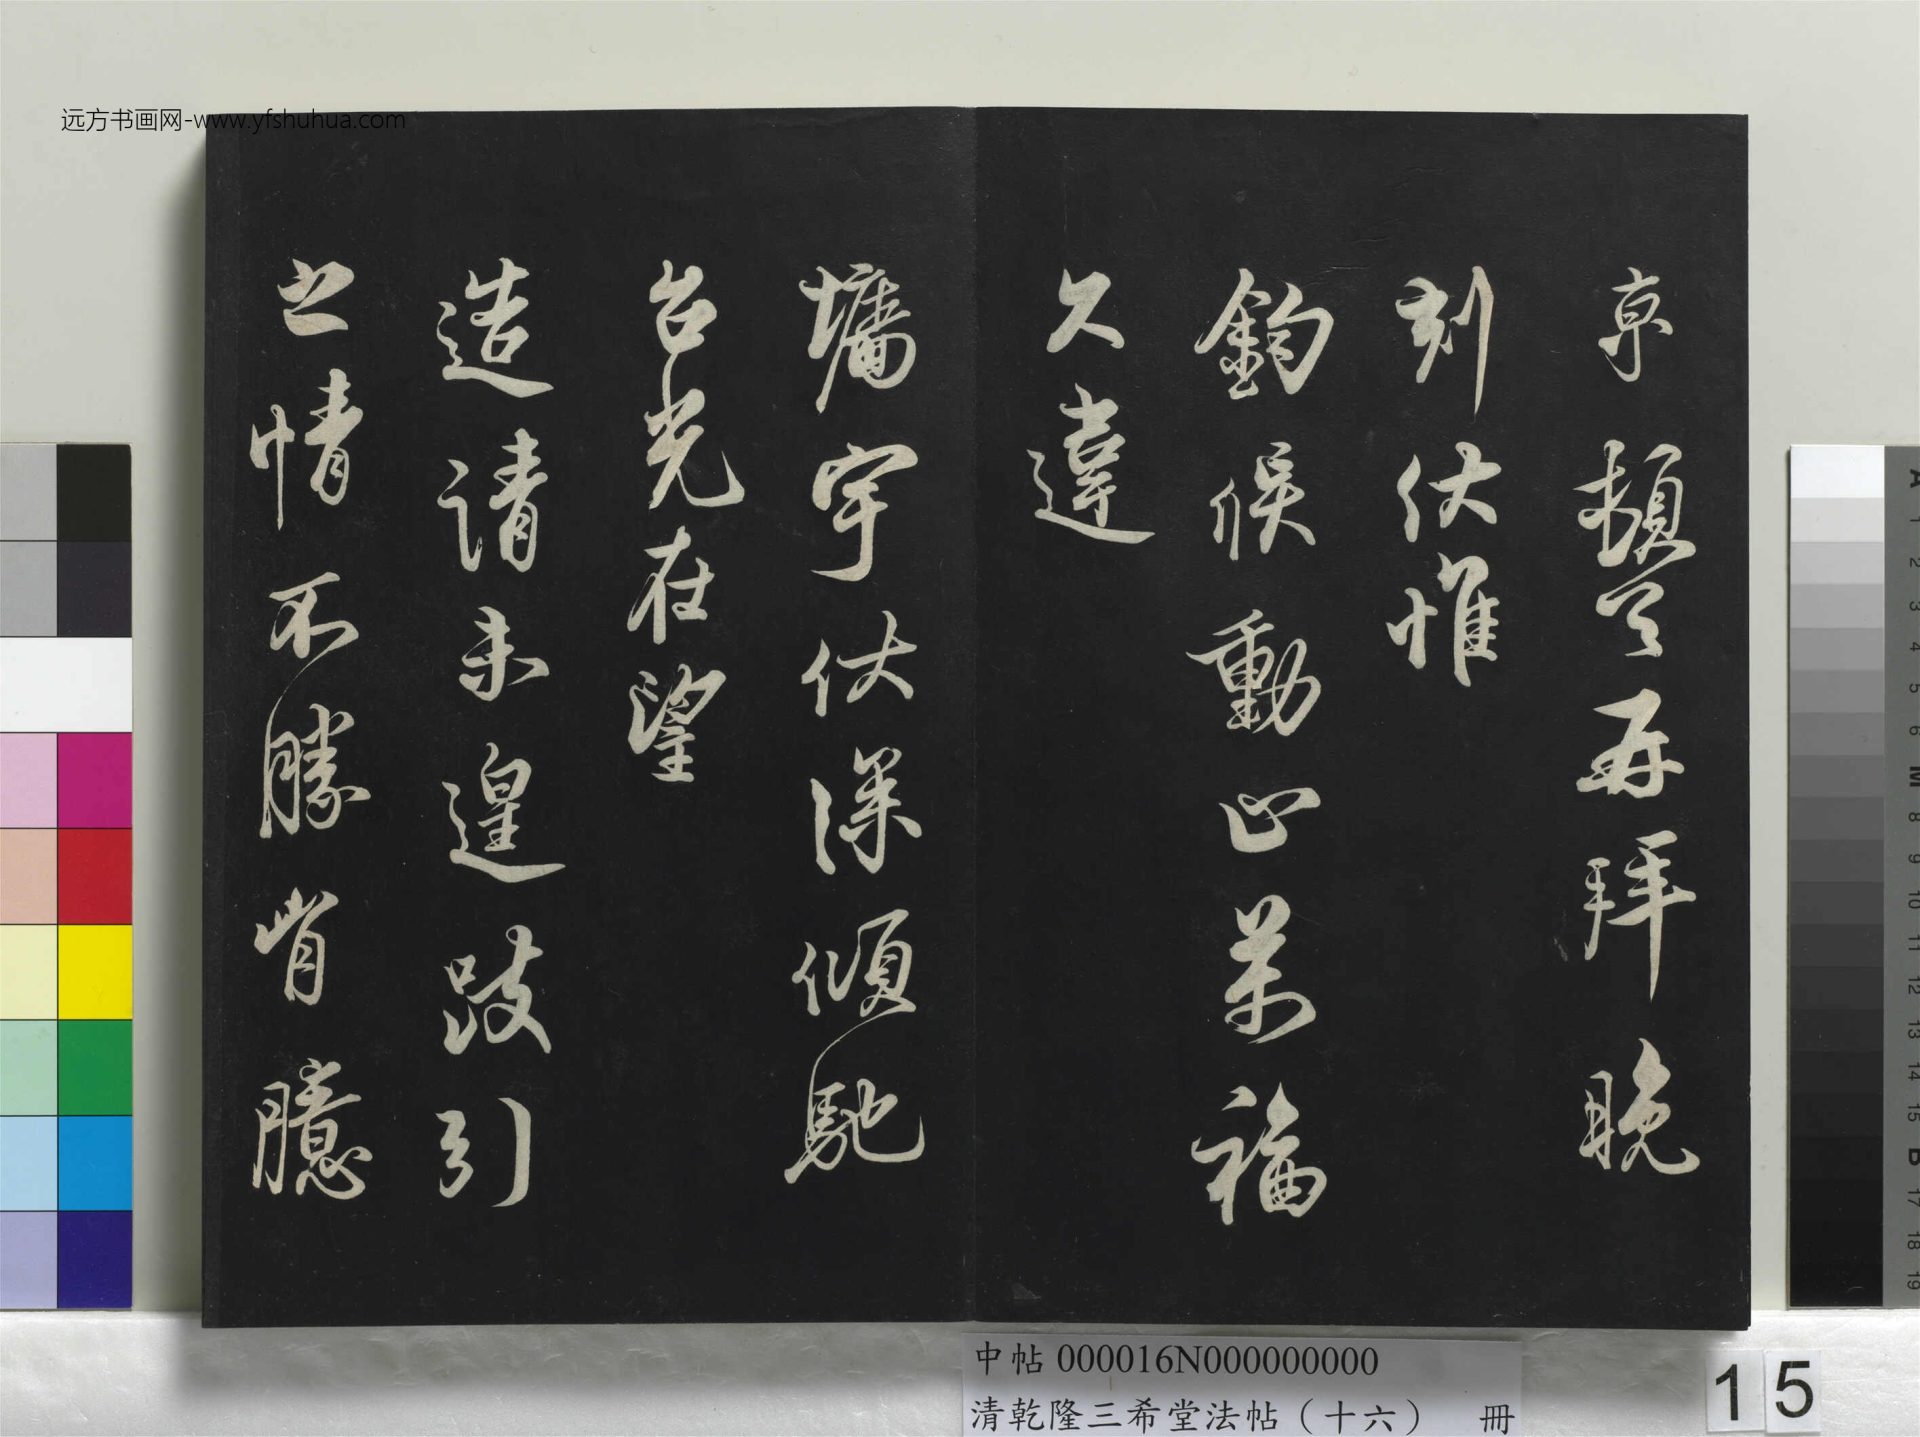 远方书画网-www.yfshuhua.com
京頓首再拜晚
刻伏惟
鈞候動止萬福
久違
墉宇伏深傾馳
台光在望
造請未遑跂引
之情不勝胷臆
中帖 000016N000000000
清乾隆三希堂法帖（十六） 冊
15
A 1 2 3 4 5 6 M 8 9 10 11 12 13 14 15 B 17 18 19